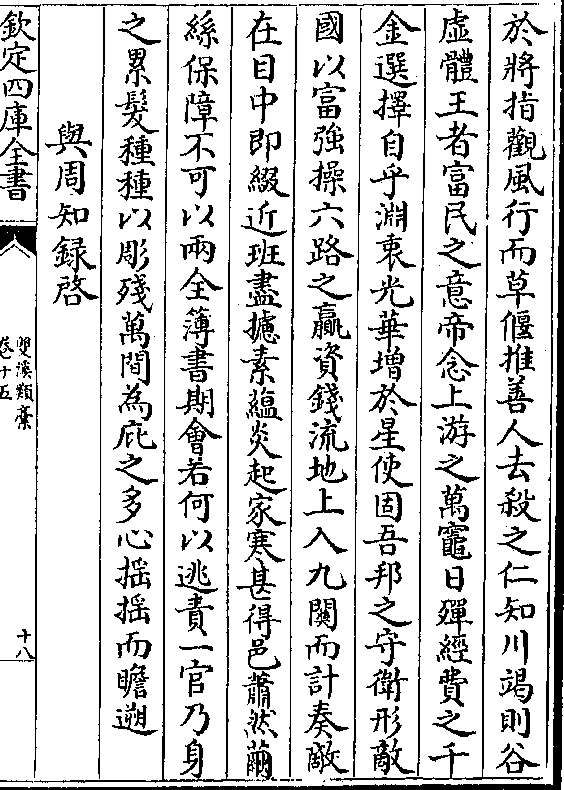 於將指觀風行而草偃推善人去殺之仁知川竭則谷
虛體王者富民之意帝念上游之萬竈日殫經費之千
金選擇自乎淵衷光華增於星使固吾邦之守衛形敵
國以富強操六路之贏資錢流地上入九關而計奏敵
在目中即綴近班盡攄素蘊炎起家寒甚得邑蕭然繭
絲保障不可以兩全簿書期會若何以逃責一官乃身
之累髮種種以彫殘萬間為庇之多心搖搖而瞻遡
與周知録啓
欽定四庫全書
雙溪類稾
卷十五
十八